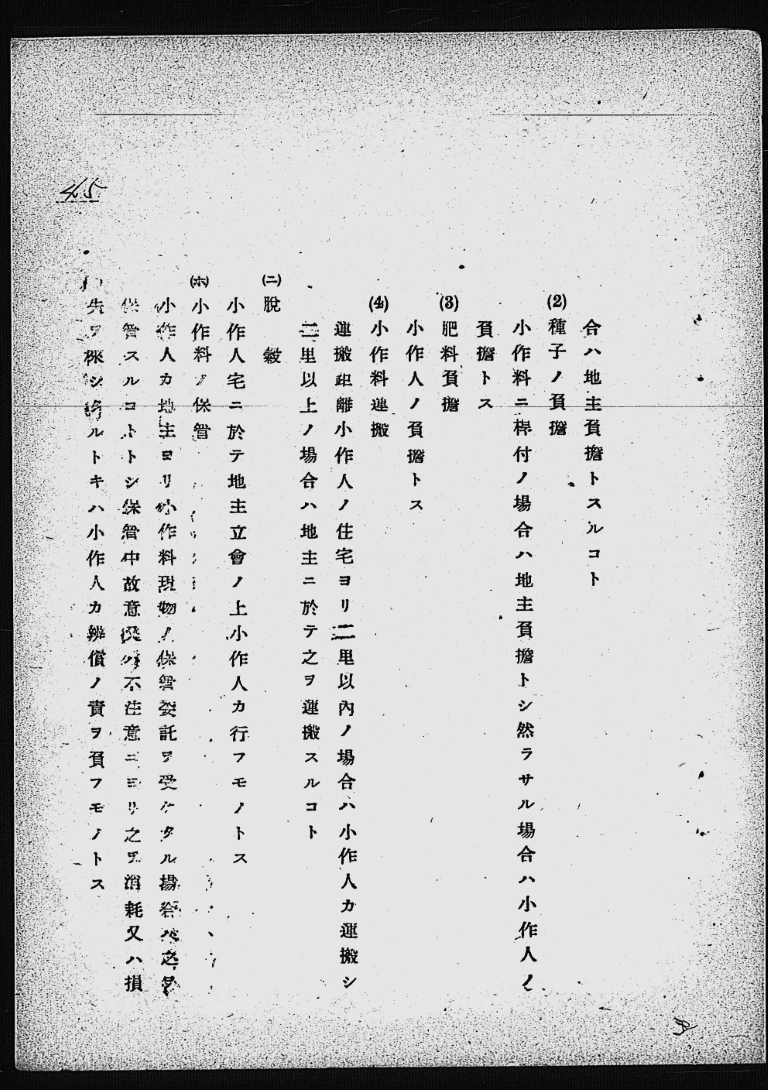 45
合ハ地主負擔トスルコト
(2) 種子ノ負擔
小作料ニ桿付ノ場合ハ地主負擔トシ然ラサル場合ハ小作人ノ
負擔トス
(3) 肥料負擔
小作人ノ負擔トス
(4) 小作料運搬
運搬距離小作人ノ住宅ヨリ二里以內ノ場合ハ小作人カ運搬シ
二里以上ノ場合ハ地主ニ於テ之ヲ運搬スルコト
(ニ) 脫穀
小作人宅ニ於テ地主立會ノ上小作人カ行フモノトス
(ホ) 小作料ノ保管
小作人カ地主ヨリ小作料現物ノ保管委託ヲ受ケタル場合ハ之ヲ
保管スルコトトシ保管中故意又ハ不注意ニヨリ之ヲ消耗又ハ損
失ヲ來シタルトキハ小作人カ辨償ノ責ヲ負フモノトス